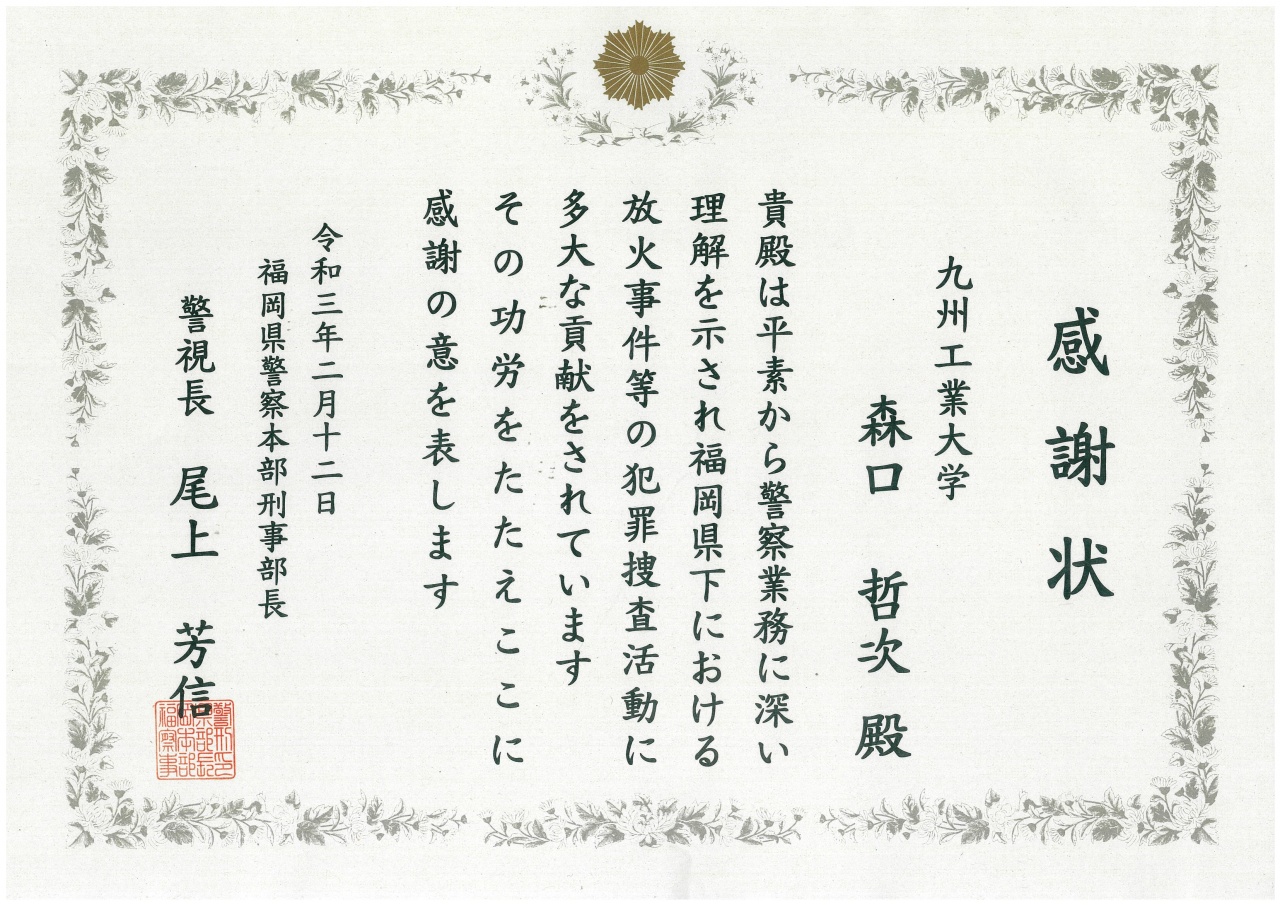 感謝状
九州工業大学
森口 哲次 殿
貴殿は平素から警察業務に深い
理解を示され福岡県下における
放火事件等の犯罪捜査活動に
多大な貢献をされています
その功労をたたえここに
感謝の意を表します
令和三年二月十二日
福岡県警察本部刑事部長
警視長 尾上 芳信
福岡県警察本部刑事部長印